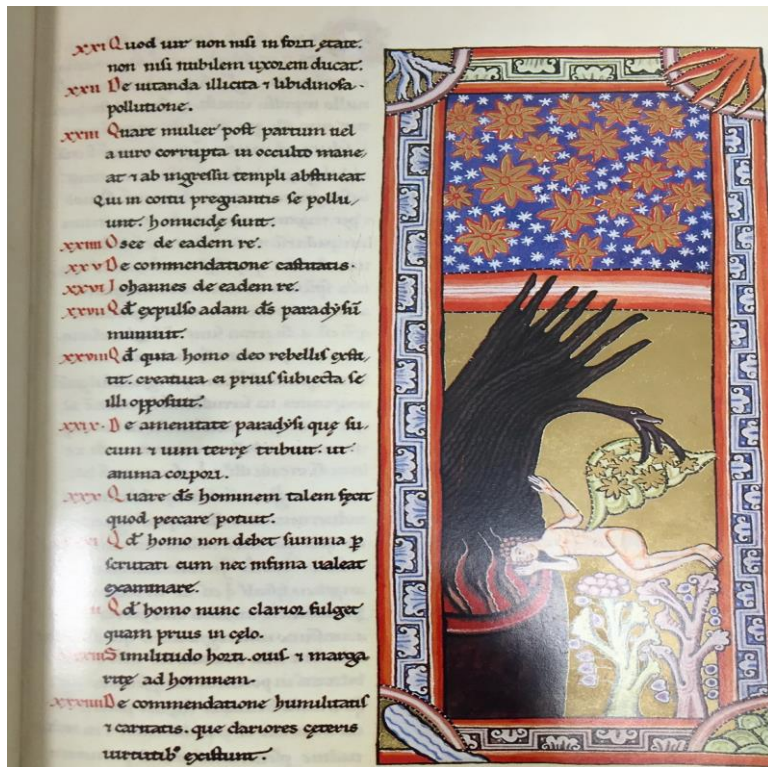 xxi Quod uir non nisi in forti etate.
non nisi nubilem uxorem ducat.
xxii De uitanda illicita ⁊ libidinosa
pollutione.
xxiii Quare mulier post partum uel
a uiro corrupta in occulto mane-
at ⁊ ab ingressu templi abstineat
Qui in coitu pregnantis se pollu-
unt. homicide sunt.
xxiiii Osee de eadem re.
xxv De commendatione castitatis.
xxvi Johannes de eadem re.
xxvii Qd̄ expulso adam ds̄ paradẏsū
muniuit.
xxviii Qd̄ quia homo deo rebellis exsti-
tit. creatura ei prius subiecta se
illi opposuit.
xxix. De amenitate paradẏsi quę su-
cum ⁊ uim terrę tribuit. ut
anima corpori.
xxx Quare ds̄ hominem talem fecit
quod peccare potuit.
Qd̄ homo non debet summa ꝑ
scrutari cum nec infima ualeat
examinare.
Qd̄ homo nunc clarior fulget
quam prius in cęlo.
Similitudo horti. ouis ⁊ marga
ritę ad hominem.
xxxiiii De commendatione humilitatis
⁊ caritatis. que clariores çeteris
uirtutibꝰ existunt.